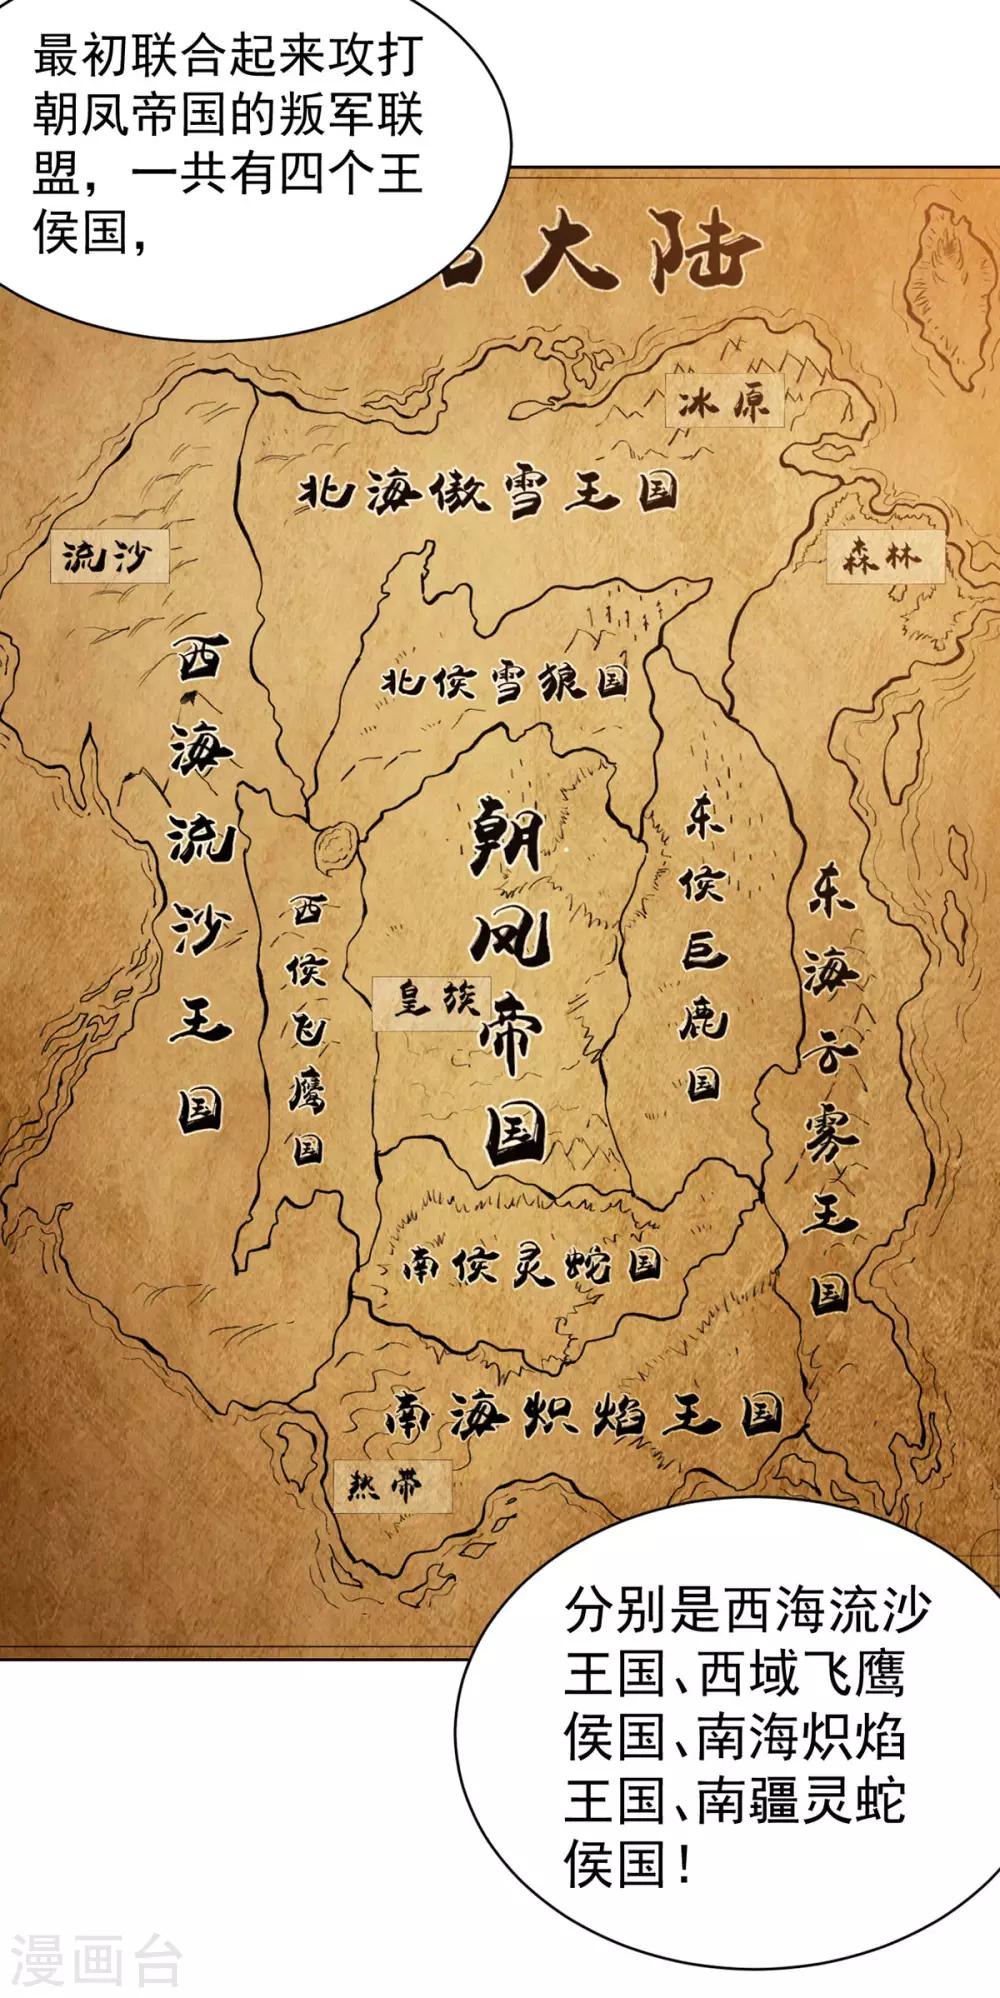 最初联合起来攻打
朝凤帝国的叛军联
盟，一共有四个王
侯国，
大陆
冰原
北海傲雪王国
流沙
森林
西海流沙王国
北侯雪狼国
朝凤帝国
东侯巨鹿国
东海云雾王国
西侯飞鹰国
皇族
南侯灵蛇国
南海炽焰王国
热带
分别是西海流沙
王国、西域飞鹰
侯国、南海炽焰
王国、南疆灵蛇
侯国！
漫画台